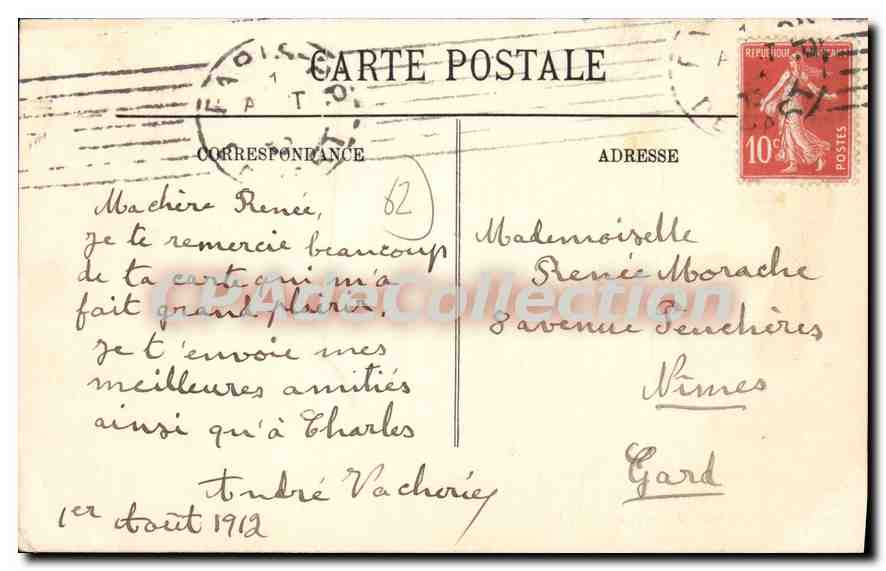 CARTE POSTALE
CORRESPONDANCE
ADRESSE
REPUBLIQUE FRANÇAISE
10c
POSTES
PARIS
62
Ma chère Renée,
je te remercie beaucoup
de ta carte qui m'a
fait grand plaisir.
Je t'envoie mes
meilleures amitiés
ainsi qu'à Charles
André
1er Août 1912
Mademoiselle
Renée Morache
8 avenue Feuchères
Nîmes
Gard
CPAdeCollection